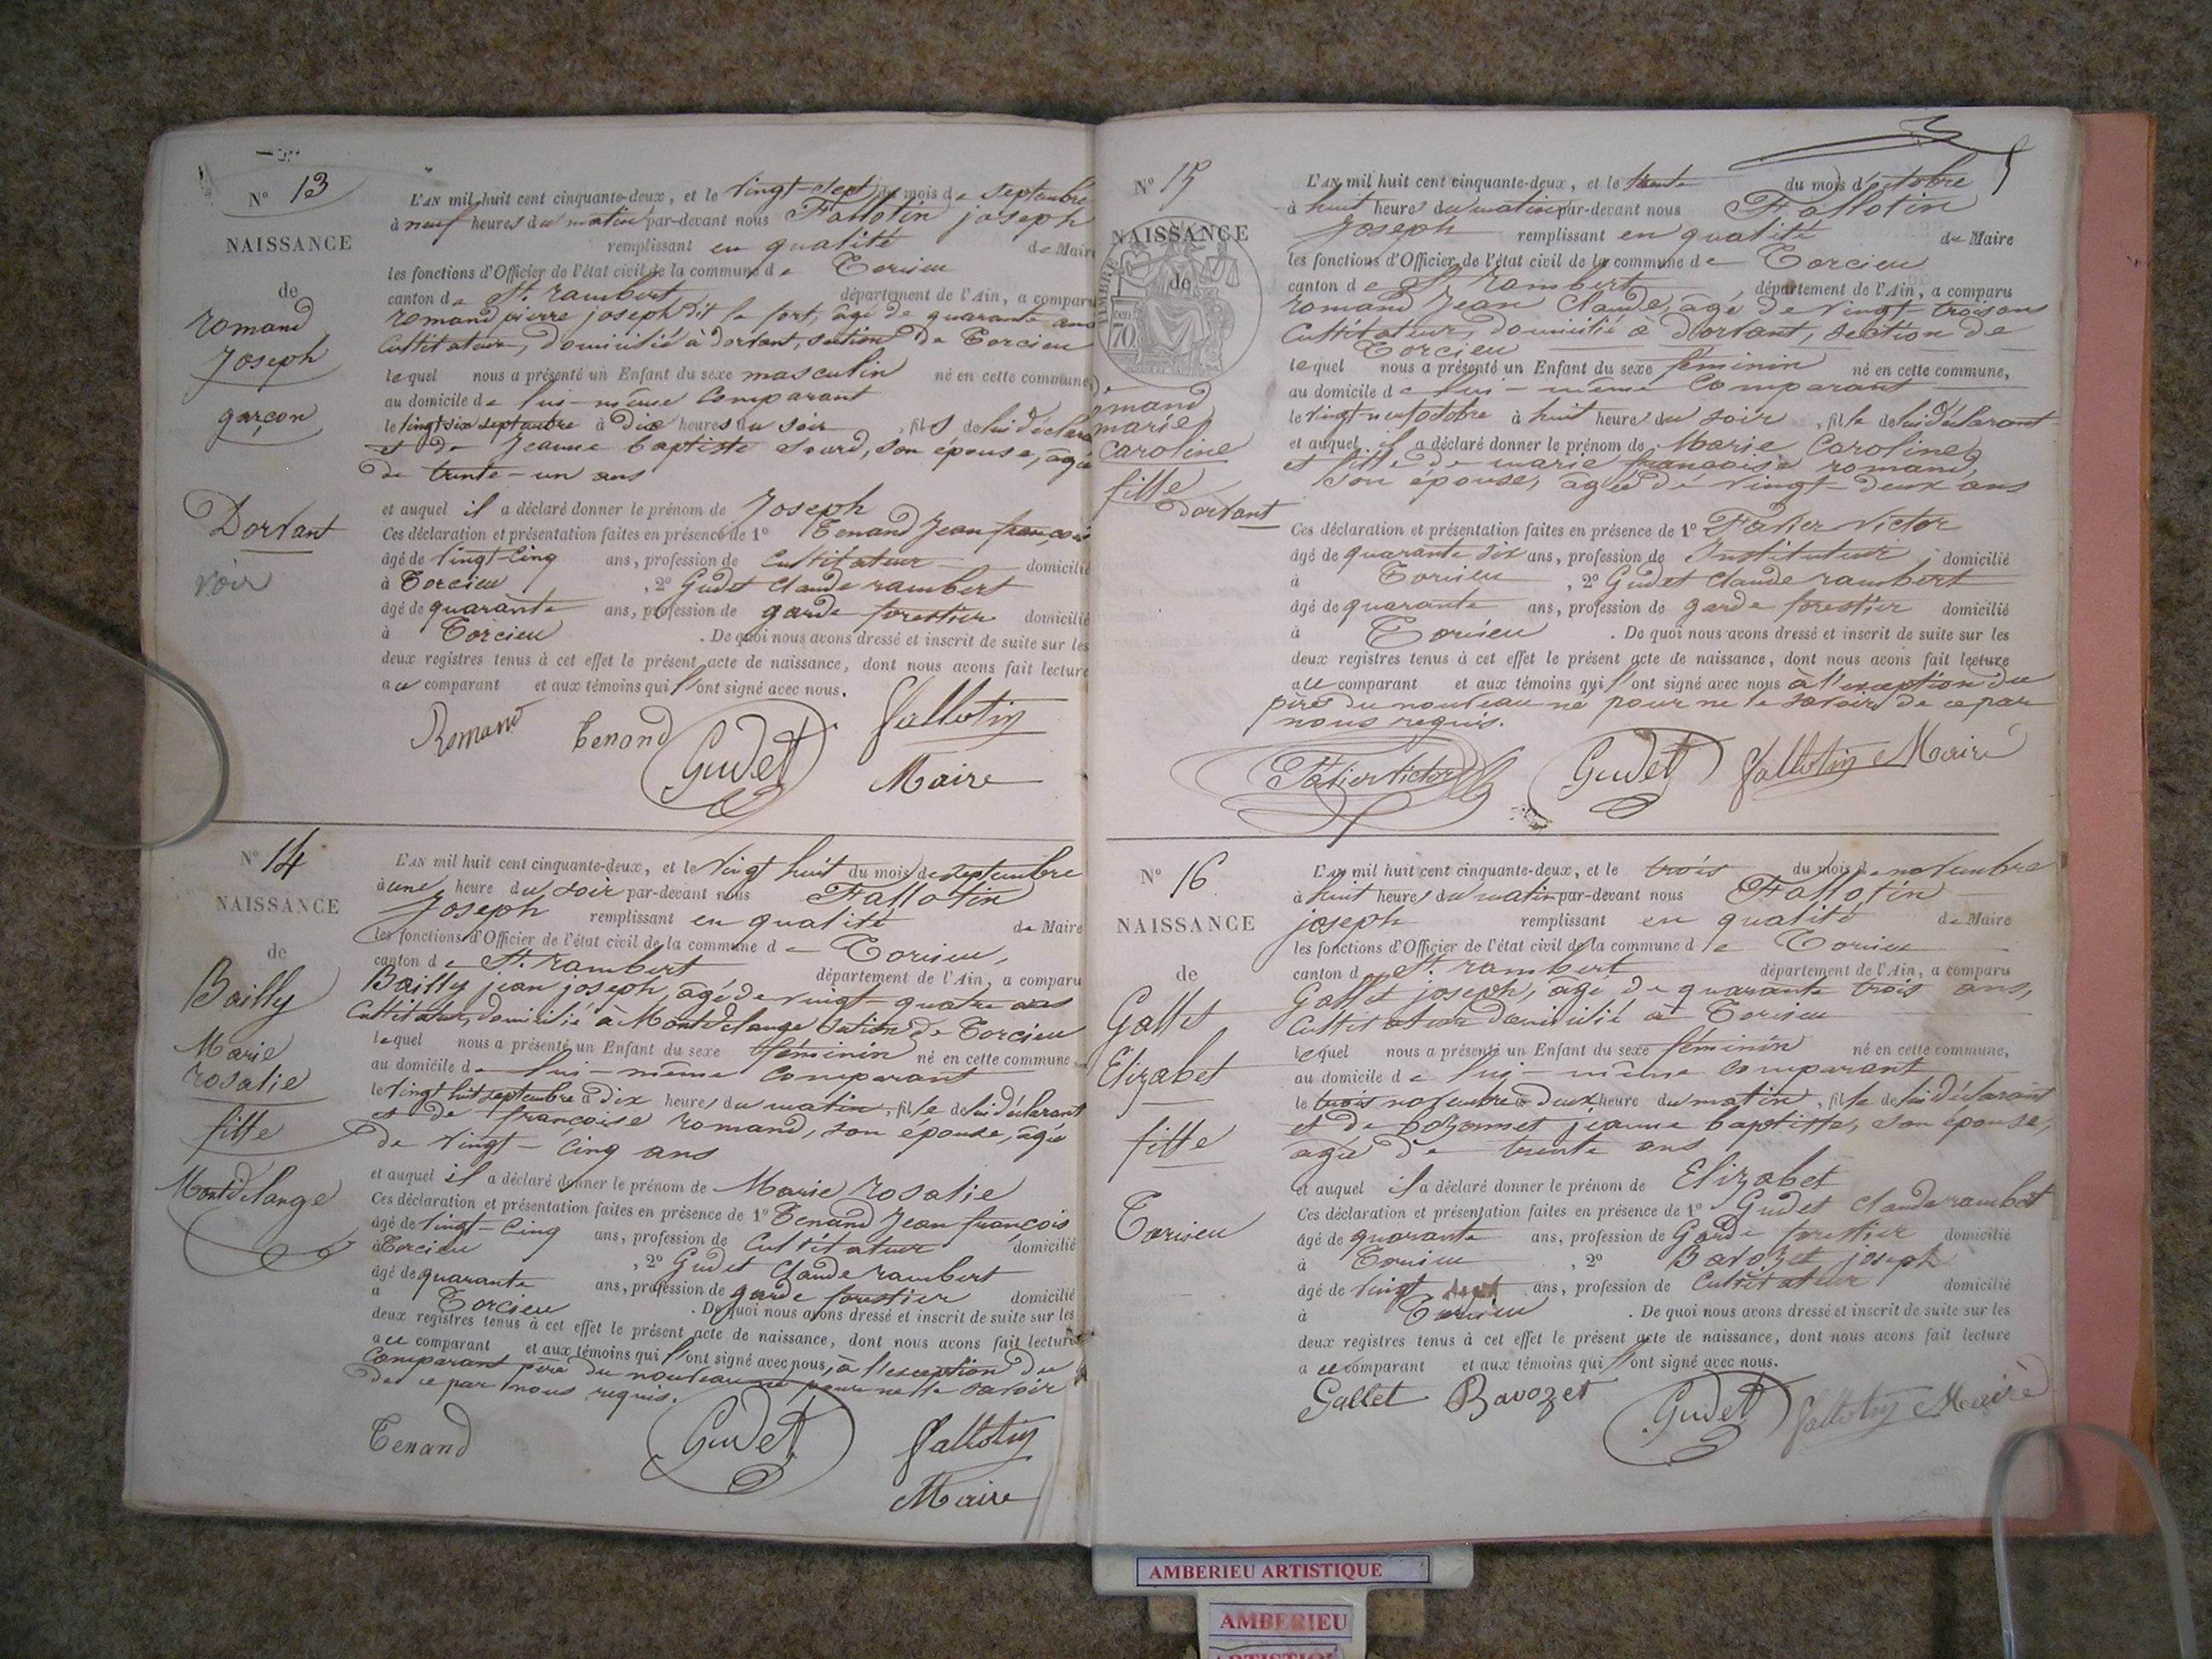 N° 13
NAISSANCE
de
romand
Joseph
garçon
Dorvant
voir
L'AN mil huit cent cinquante-deux, et le vingt-sept du mois de septembre
à neuf heures du matin par-devant nous Fallotin joseph
remplissant en qualité de Maire
les fonctions d'Officier de l'état civil de la commune de Torcieu
canton de St. rambert département de l'Ain, a comparu
romand pierre joseph dit le fort, âgé de quarante ans
Cultivateur, domicilié à dorvant, section de Torcieu
lequel nous a présenté un Enfant du sexe masculin né en cette commune,
au domicile de lui-même Comparant
le vingt six septembre à Dix heures du soir, fils de lui déclarant
et de Jeanne baptiste sourd, son épouse, âgée
de trente-un ans
et auquel il a déclaré donner le prénom de Joseph
Ces déclaration et présentation faites en présence de 1° Tenand Jean françois
âgé de vingt-cinq ans, profession de Cultivateur domicilié
à Torcieu, 2° Gudet Claude rambert
âgé de quarante ans, profession de garde forestier domicilié
à Torcieu. De quoi nous avons dressé et inscrit de suite sur les
deux registres tenus à cet effet le présent acte de naissance, dont nous avons fait lecture
au comparant et aux témoins qui l'ont signé avec nous.
Romand Tenand Gudet Fallotin
Maire
N° 14
NAISSANCE
de
Bailly
Marie
rosalie
fille
Montdelange
L'AN mil huit cent cinquante-deux, et le vingt huit du mois de septembre
à une heure du soir par-devant nous Fallotin
Joseph remplissant en qualité de Maire
les fonctions d'Officier de l'état civil de la commune de Torcieu,
canton de St. rambert département de l'Ain, a comparu
Bailly jean joseph, âgé de vingt-quatre ans
Cultivateur, domicilié à Montdelange section de Torcieu
lequel nous a présenté un Enfant du sexe féminin né en cette commune
au domicile de lui-même Comparant
le vingt huit septembre à dix heures du matin, fille de lui déclarant
et de françoise romand, son épouse, âgée
de vingt-cinq ans
et auquel il a déclaré donner le prénom de Marie rosalie
Ces déclaration et présentation faites en présence de 1° Tenand Jean françois
âgé de vingt-cinq ans, profession de Cultivateur domicilié
à Torcieu, 2° Gudet Claude rambert
âgé de quarante ans, profession de garde forestier domicilié
à Torcieu. De quoi nous avons dressé et inscrit de suite sur les
deux registres tenus à cet effet le présent acte de naissance, dont nous avons fait lecture
au comparant et aux témoins qui l'ont signé avec nous, à l'exception du
Comparant père du nouveau né pour ne le savoir
de ce par nous requis.
Tenand Gudet Fallotin
Maire
N° 15
NAISSANCE
de
TIMBRE
70
romand
marie
Caroline
fille
dorvant
L'AN mil huit cent cinquante-deux, et le trente du mois d'octobre
à huit heures du matin par-devant nous Fallotin
Joseph remplissant en qualité de Maire
les fonctions d'Officier de l'état civil de la commune de Torcieu
canton de St. rambert département de l'Ain, a comparu
romand Jean Claude, âgé de vingt-trois ans
Cultivateur, domicilié à dorvant, section de
Torcieu
lequel nous a présenté un Enfant du sexe féminin né en cette commune,
au domicile de lui-même Comparant
le vingt-neuf octobre à huit heures du soir, fille de lui déclarant
et auquel il a déclaré donner le prénom de Marie Caroline
et fille de marie françoise romand,
son épouse, âgée de vingt-deux ans
Ces déclaration et présentation faites en présence de 1° Favier Victor
âgé de quarante six ans, profession de Instituteur domicilié
à Torcieu, 2° Gudet Claude rambert
âgé de quarante ans, profession de garde forestier domicilié
à Torcieu. De quoi nous avons dressé et inscrit de suite sur les
deux registres tenus à cet effet le présent acte de naissance, dont nous avons fait lecture
au comparant et aux témoins qui l'ont signé avec nous à l'exception du
père du nouveau né pour ne le savoir de ce par
nous requis.
Favier Victor Gudet Fallotin Maire
N° 16
NAISSANCE
de
Gallet
Elizabet
fille
Torcieu
L'AN mil huit cent cinquante-deux, et le trois du mois de novembre
à huit heures du matin par-devant nous Fallotin
joseph remplissant en qualité de Maire
les fonctions d'Officier de l'état civil de la commune de Torcieu
canton d St. rambert département de l'Ain, a comparu
Gallet joseph, âgé de quarante trois ans,
Cultivateur domicilié à Torcieu
lequel nous a présenté un Enfant du sexe féminin né en cette commune,
au domicile de lui-même Comparant
le trois novembre à deux heure du matin, fille de lui déclarant
et de bozonnet jeanne baptiste, son épouse,
agée de trente ans
et auquel il a déclaré donner le prénom de Elizabet
Ces déclaration et présentation faites en présence de 1° Gudet Claude rambert
âgé de quarante ans, profession de Garde forestier domicilié
à Torcieu, 2° Bavozet joseph
âgé de vingt ans, profession de Cultivateur domicilié
à Torcieu. De quoi nous avons dressé et inscrit de suite sur les
deux registres tenus à cet effet le présent acte de naissance, dont nous avons fait lecture
au comparant et aux témoins qui l'ont signé avec nous.
Gallet Bavozet Gudet Fallotin Maire
AMBERIEU ARTISTIQUE
AMBERIEU
ARTISTIQUE